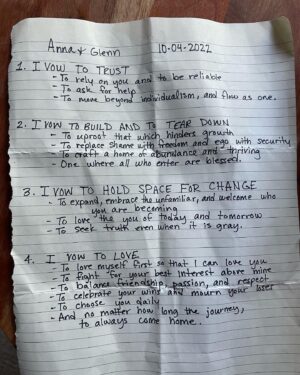 Anna & Glenn 10-04-2022
1. I VOW TO TRUST
- To rely on you and to be reliable
- To ask for help
- To move beyond individualism, and flow as one.
2. I VOW TO BUILD AND TO TEAR DOWN
- To uproot that which hinders growth
- To replace shame with freedom and ego with security
- To craft a home of abundance and thriving
- One where all who enter are blessed.
3. I VOW TO HOLD SPACE FOR CHANGE
- To expand, embrace the unfamiliar, and welcome who
you are becoming
- To love the you of today and tomorrow
- To seek truth even when it is gray.
4. I VOW TO LOVE
- To love myself first so that I can love you
- To fight for your best interest above mine
- To balance friendship, passion, and respect
- To celebrate your wins and mourn your loses
- To choose you daily
- And no matter how long the journey,
to always come home..